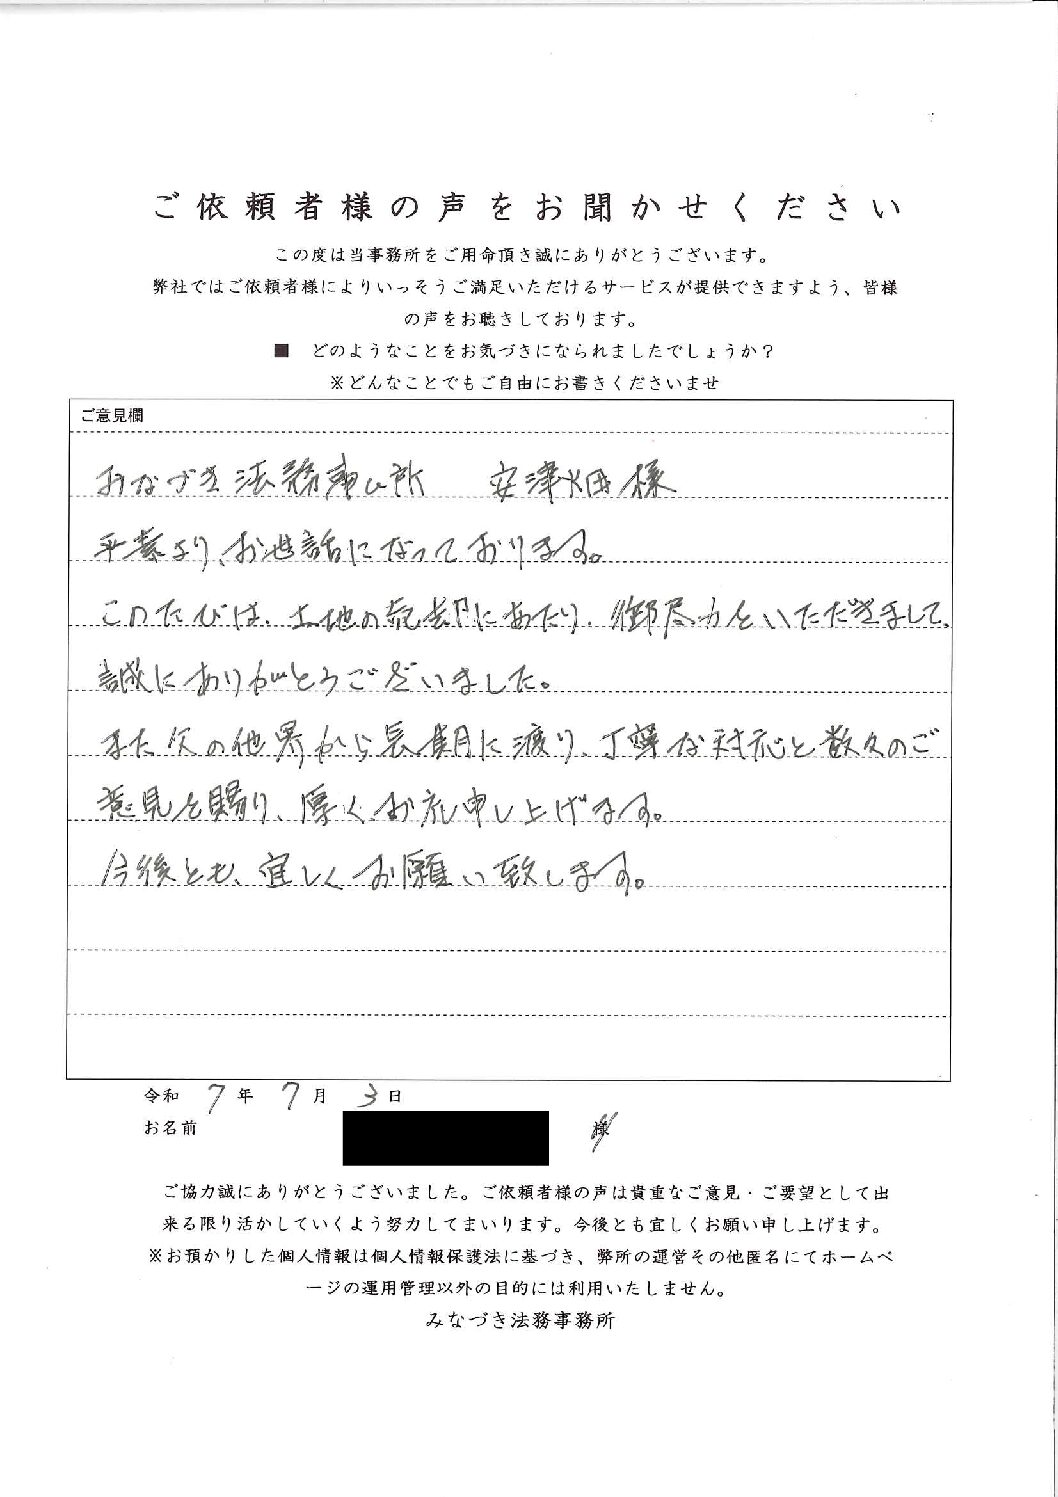 ご依頼者様の声をお聞かせください
この度は当事務所をご用命頂き誠にありがとうございます。
弊社ではご依頼者様によりいっそうご満足いただけるサービスが提供できますよう、皆様
の声をお聴きしております。
■ どのようなことをお気づきになられましたでしょうか？
※どんなことでもご自由にお書きくださいませ
ご意見欄
みなづき法務事ム所 安津畑様
平素より、お世話になっております。
このたびは、土地の売却にあたり、御尽力をいただきまして、
誠にありがとうございました。
また父の他界から長期に渡り、丁寧な対応と数々のご
意見を賜り、厚くお礼申し上げます。
今後とも、宜しくお願い致します。
令和 7 年 7 月 3 日
お名前 様
ご協力誠にありがとうございました。ご依頼者様の声は貴重なご意見・ご要望として出
来る限り活かしていくよう努力してまいります。今後とも宜しくお願い申し上げます。
※お預かりした個人情報は個人情報保護法に基づき、弊所の運営その他匿名にてホームペ
ージの運用管理以外の目的には利用いたしません。
みなづき法務事務所